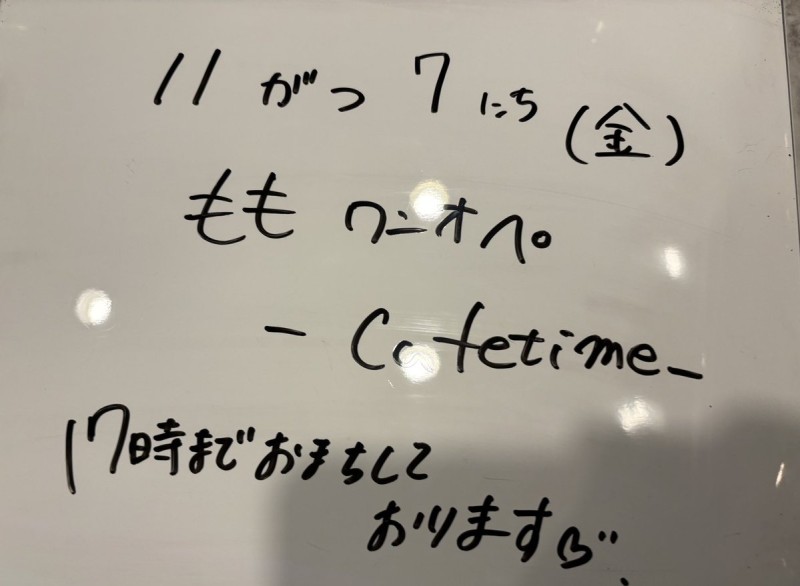 11がつ7にち(金)
もも ワンオペ。
- Cafetime -
17時までおまちして
おります